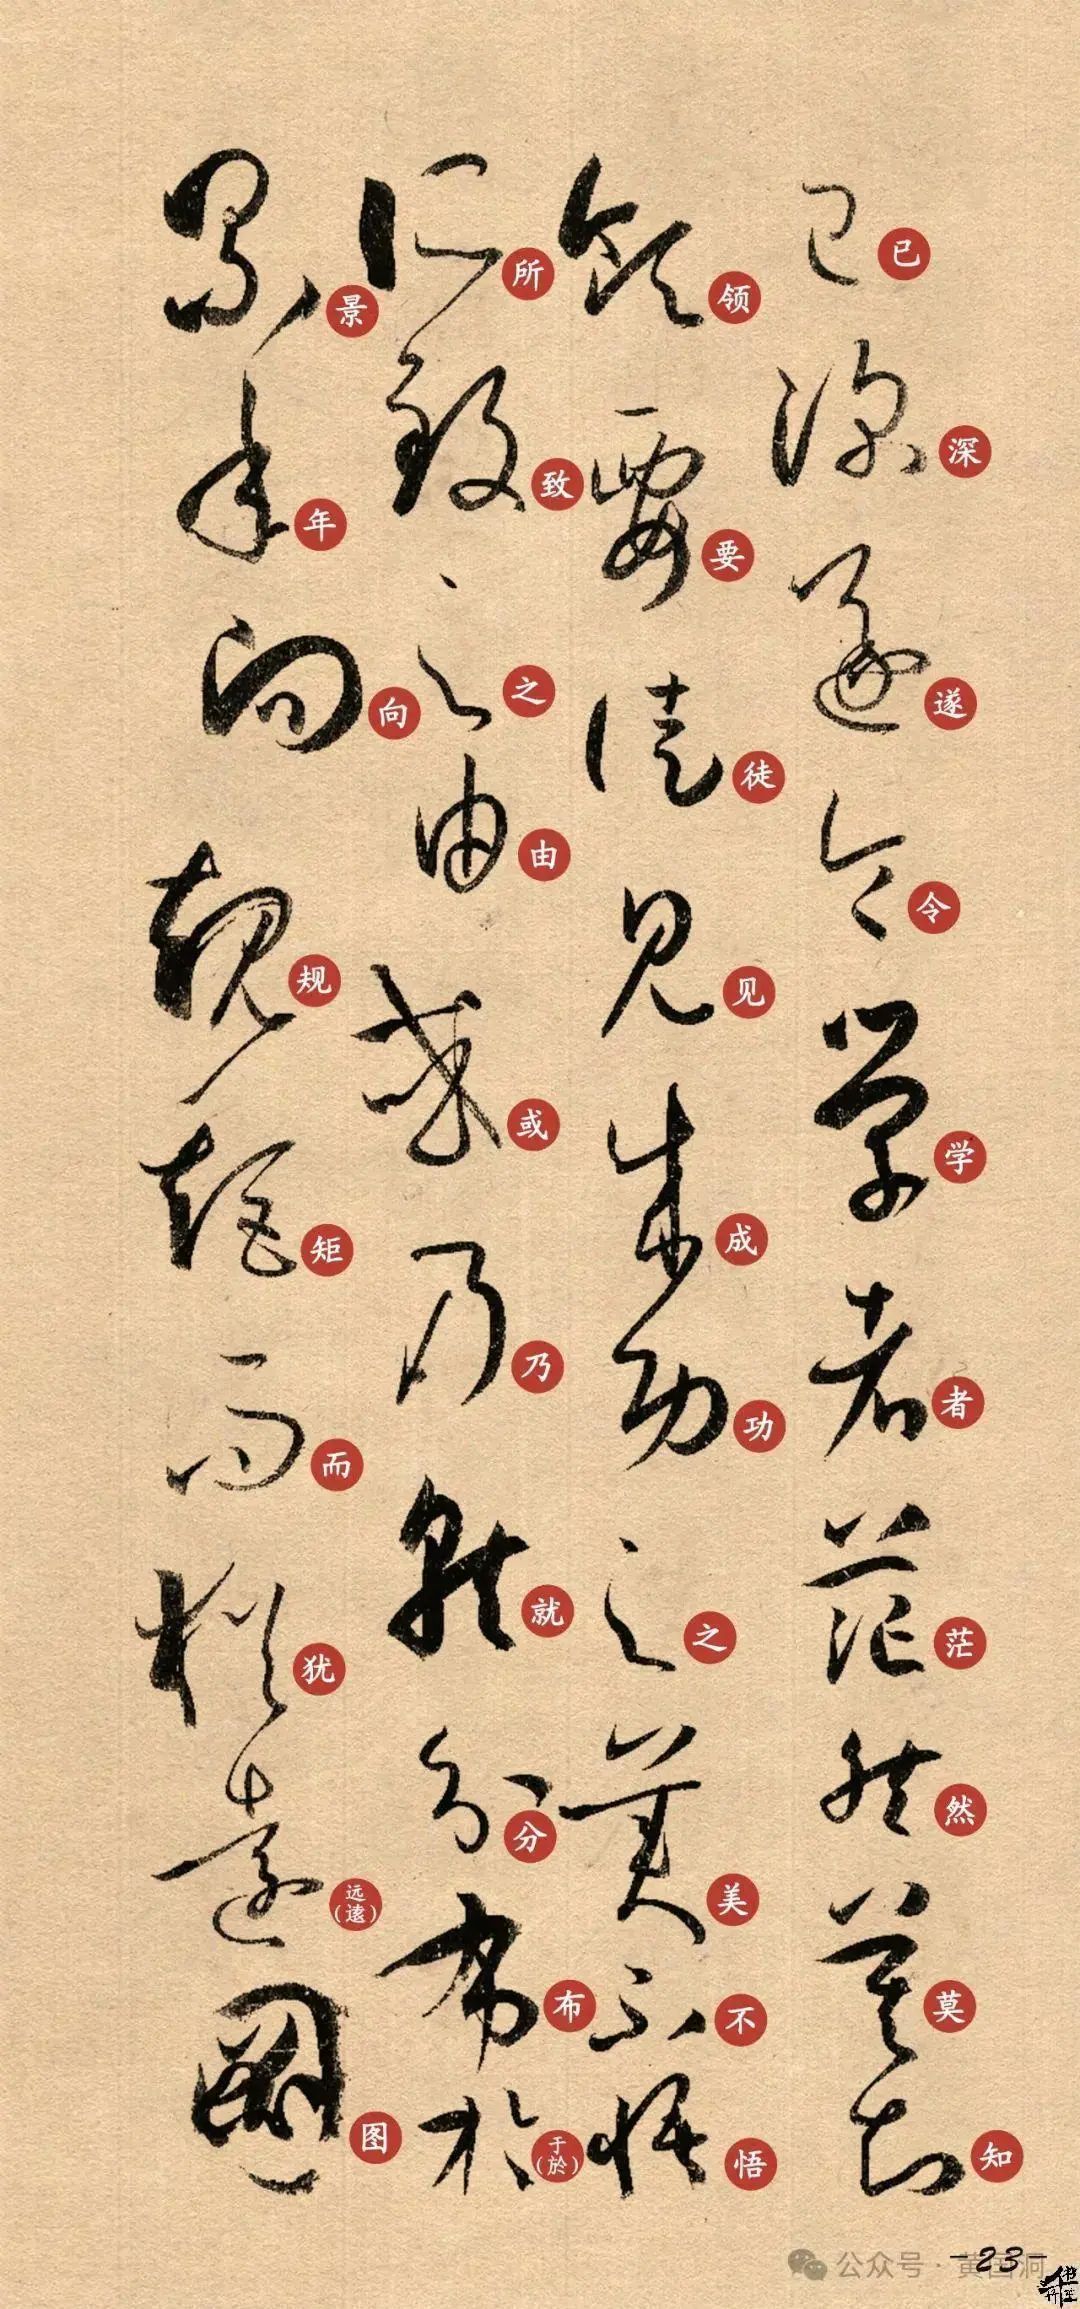 已深遂令学者茫然莫知
领要徒见成功之美不悟
所致之由或乃就分布于(於)
景年向规矩而犹远(逺)图
公众号·黄国洞
-23-